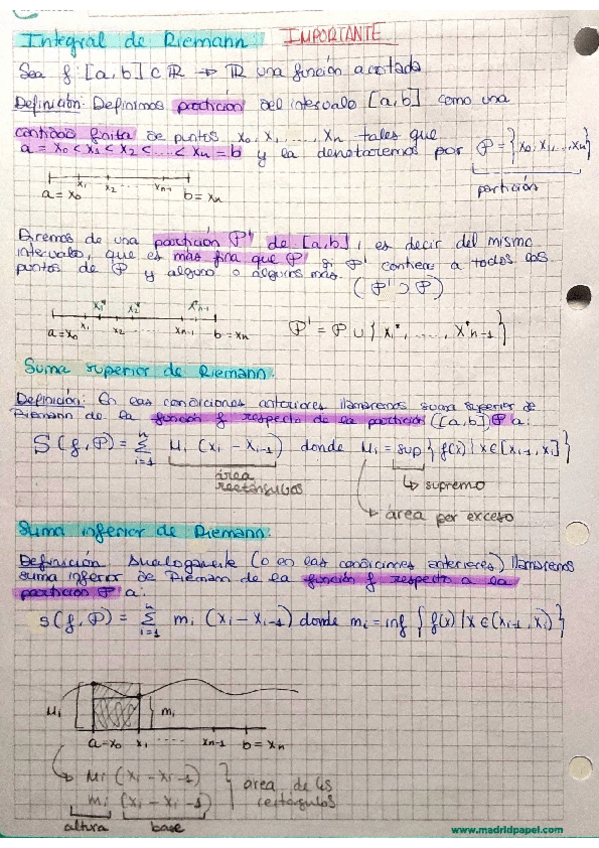 Integral de Riemann IMPORTANTE
Sea f: [a,b] ⊂ ℝ → ℝ una función acotada
Definición: Definimos partición del intervalo [a,b] como una
cantidad finita de puntos x₀, x₁, ....., xₙ tales que
a = x₀ < x₁ < x₂ < ..... < xₙ = b y la denotaremos por 𝒫 = {x₀, x₁, ..., xₙ}
partición
a = x₀ x₁ x₂ ..... xₙ₋₁ b = xₙ
Diremos de una partición 𝒫' de [a,b], es decir del mismo
intervalo, que es más fina que 𝒫 si 𝒫' contiene a todos los
puntos de 𝒫 y alguno o algunos más. (𝒫' ⊃ 𝒫)
x₁* x₂* x*ₙ₋₁
a = x₀ x₁ x₂ ..... xₙ₋₁ b = xₙ
𝒫' = 𝒫 ∪ {x₁*, ....., x*ₙ₋₁}
Suma superior de Riemann.
Definición: En las condiciones anteriores llamaremos suma superior de
Riemann de la función f respecto de la partición ([a,b]) 𝒫 a:
S(f,𝒫) = Σⁿᵢ₌₁ Mᵢ (xᵢ - xᵢ₋₁) donde Mᵢ = sup {f(x) | x ∈ [xᵢ₋₁, xᵢ]}
área
rectángulos
↳ supremo
↳ área por exceso
Suma inferior de Riemann.
Definición Análogamente (o en las condiciones anteriores) llamaremos
suma inferior de Riemann de la función f respecto a la
partición 𝒫 a:
s(f,𝒫) = Σⁿᵢ₌₁ mᵢ (xᵢ - xᵢ₋₁) donde mᵢ = inf {f(x) | x ∈ (xᵢ₋₁, xᵢ)}
Mᵢ mᵢ
a = x₀ x₁ ..... xₙ₋₁ b = xₙ
↳ Mᵢ (xᵢ - xᵢ₋₁)
mᵢ (xᵢ - xᵢ₋₁)
área de los
rectángulos
altura base
www.madridpapel.com